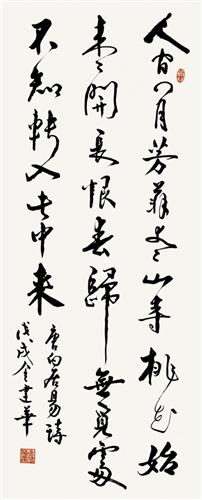 人間四月芳菲盡山寺桃花始
盛開長恨春歸無覓處
不知轉入此中来
唐白居易詩
戊戌金建華